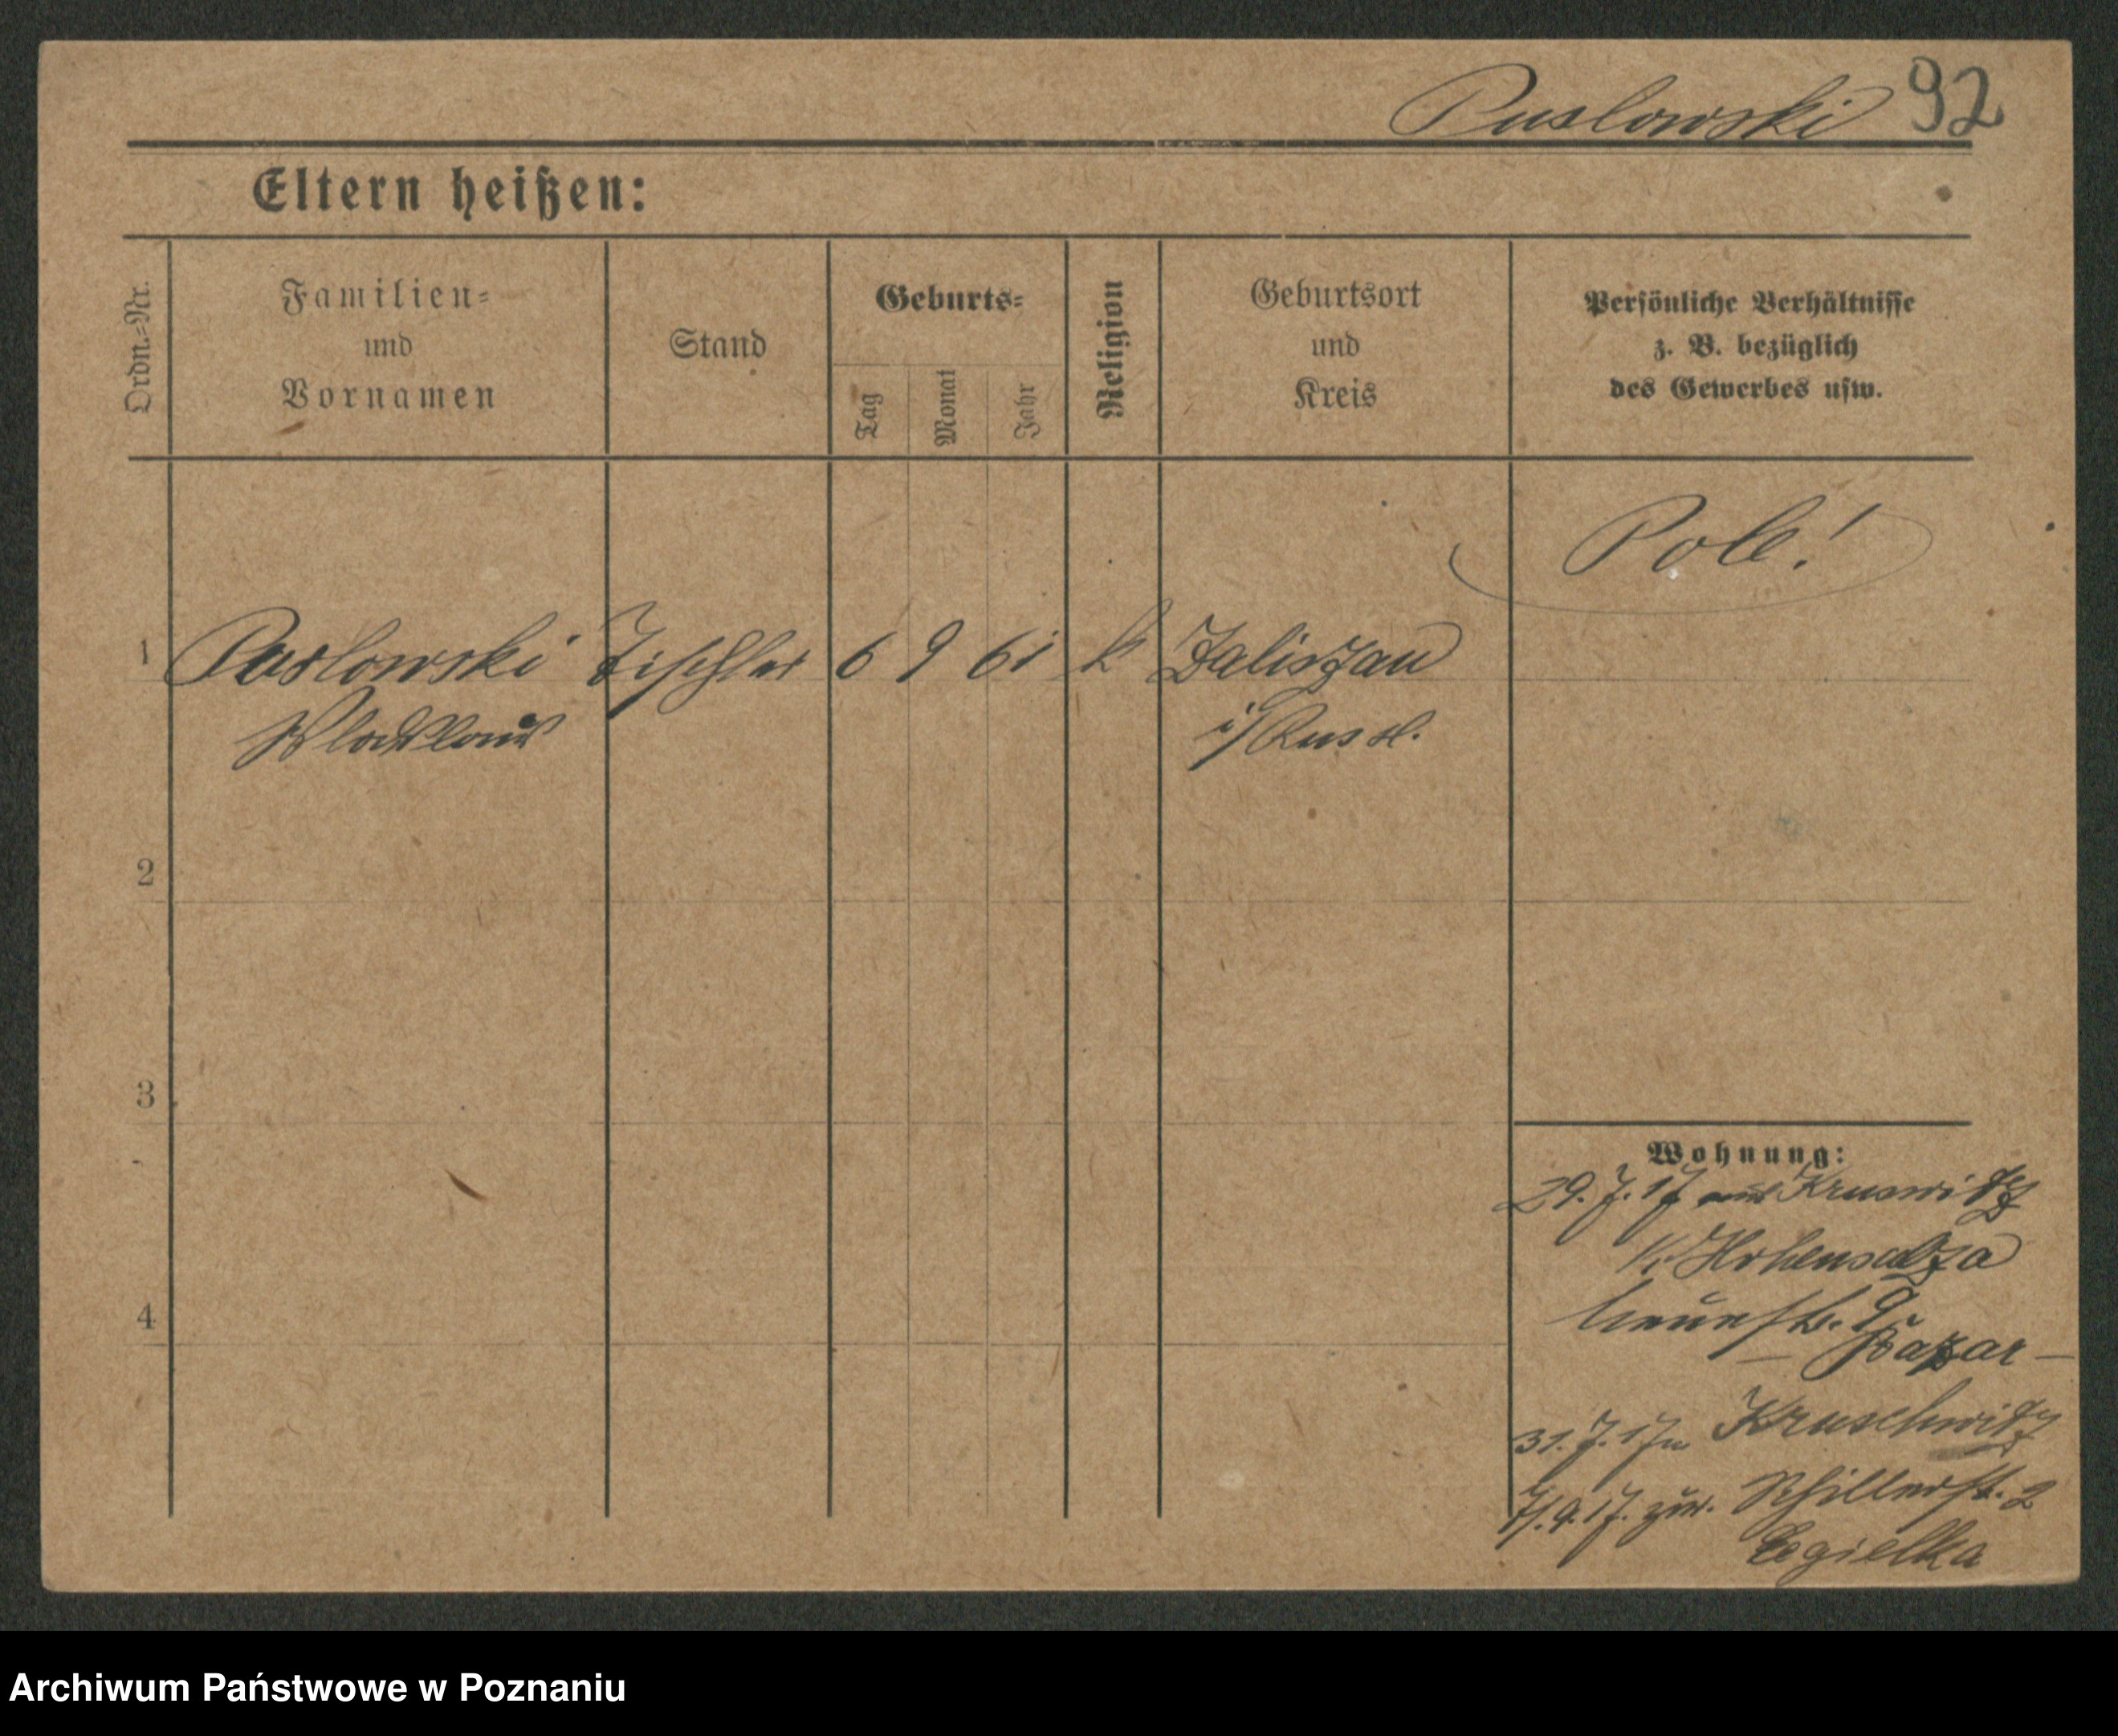 Puslowski 92
Eltern heißen:
Ordn.-Nr.
Familien-
und
Vornamen
Stand
Geburts-
Tag
Monat
Jahr
Religion
Geburtsort
und
Kreis
Persönliche Verhältnisse
z. B. bezüglich
des Gewerbes usw.
Pole!
1 Puslowski Tischler 6 9 61 k
i/ Russl.
2
3
4
Wohnung:
29.7.17 aus Kruswitz
Kr. Hohensalza
Neuestr. 9
— Bazar —
31.7.17 n Kruschwitz
17. zur. Schillerstr. 2
Cegielka
Archiwum Państwowe w Poznaniu